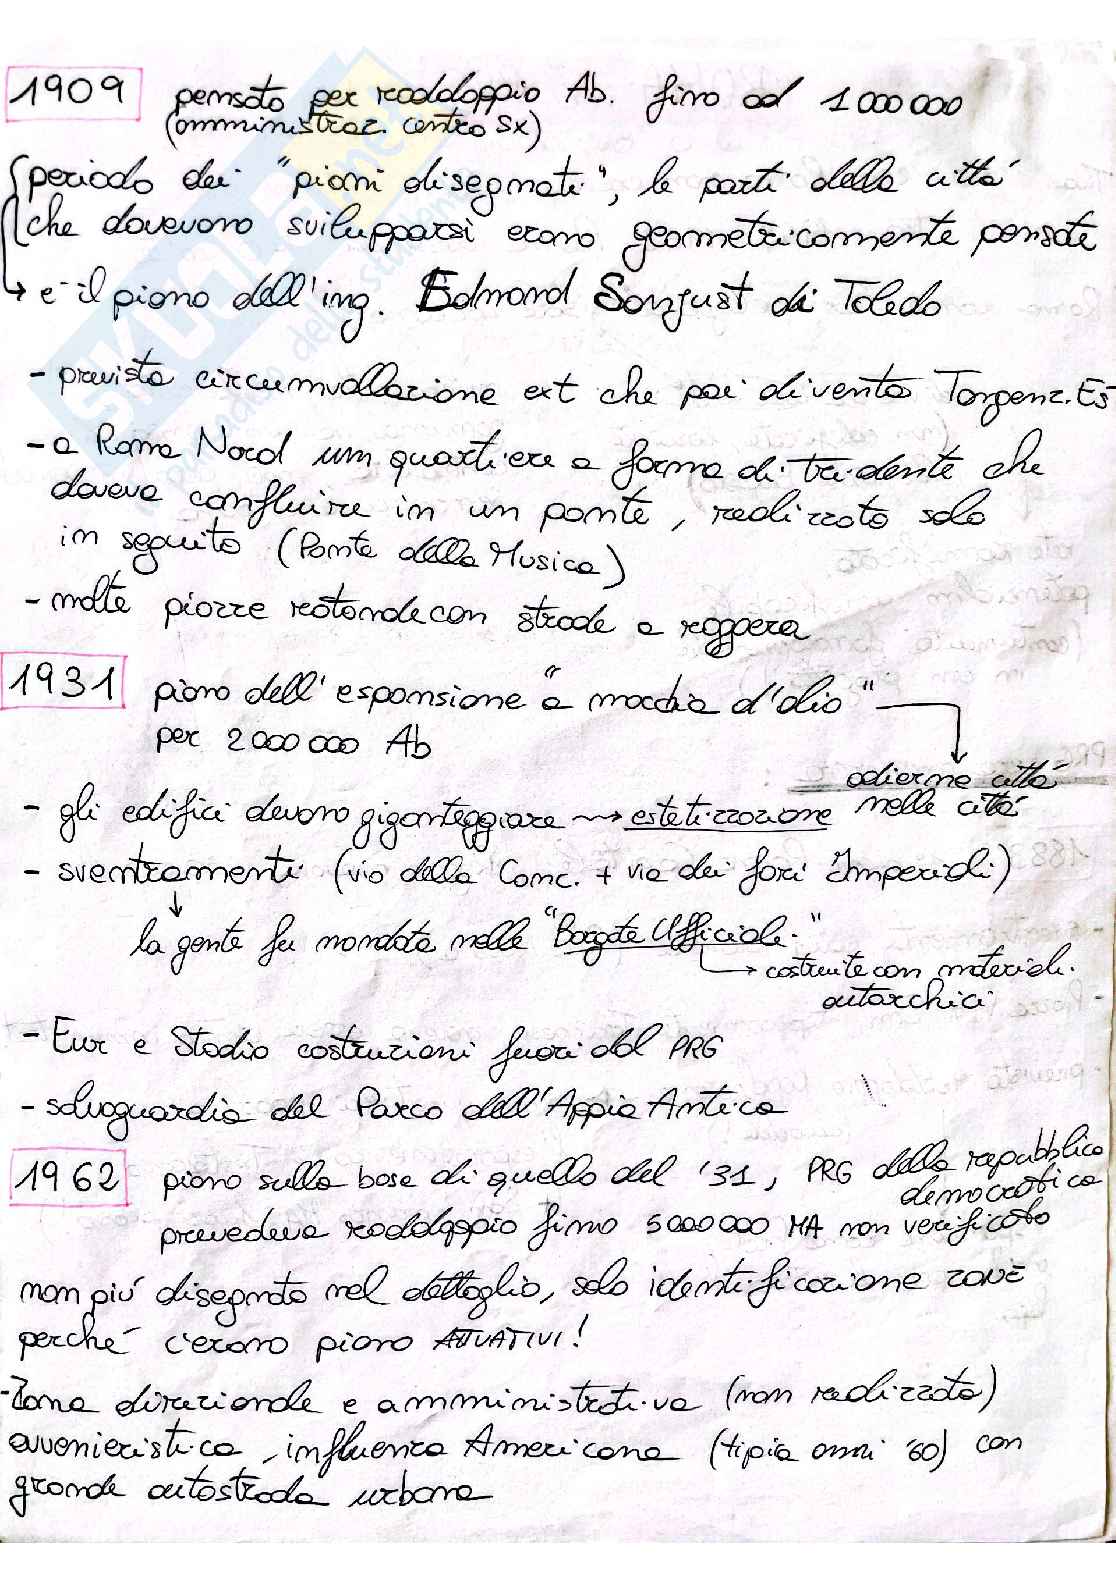 1909 pensato per raddoppio Ab. fino ad 1 000 000
(amministraz. centro Sx)
periodo dei "piani disegnati", le parti della città
che dovevono svilupparsi erano geometricamente pensate
→ è il piano dell'ing. Edmond Sanjust di Toledo
- prevista circumvallazione ext che poi diventa Tangenz. Es
- a Roma Nord un quartiere a forma di tridente che
doveva confluire in un ponte, realizzato solo
in seguito (Ponte della Musica)
- molte piazze rotonde con strade a raggera
1931 piano dell'espansione "a macchia d'olio"
per 2 000 000 Ab
odierne città
nelle città
- gli edifici devono giganteggiare → estetizzazione
- sventramenti (via della Conc. + via dei fori Imperiali)
la gente fu mandata nelle "Borgate Ufficiali."
→ costruite con materiali
autarchici
- Eur e Stadio costruzioni fuori dal PRG
- salvaguardia del Parco dell'Appia Antica
1962 piano sulla base di quello del '31, PRG della repubblica
democratica
prevedeva raddoppio fino 5 000 000 MA non verificato
non più disegnato nel dettaglio, solo identificazione zone
perché c'erano piano ATTUATIVI!
- Zona direzionale e amministrativa (non realizzata)
avvenieristica, influenza Americana (tipia anni '60) con
grande autostrada urbana
SKUOLA.net
il paradiso dello studente